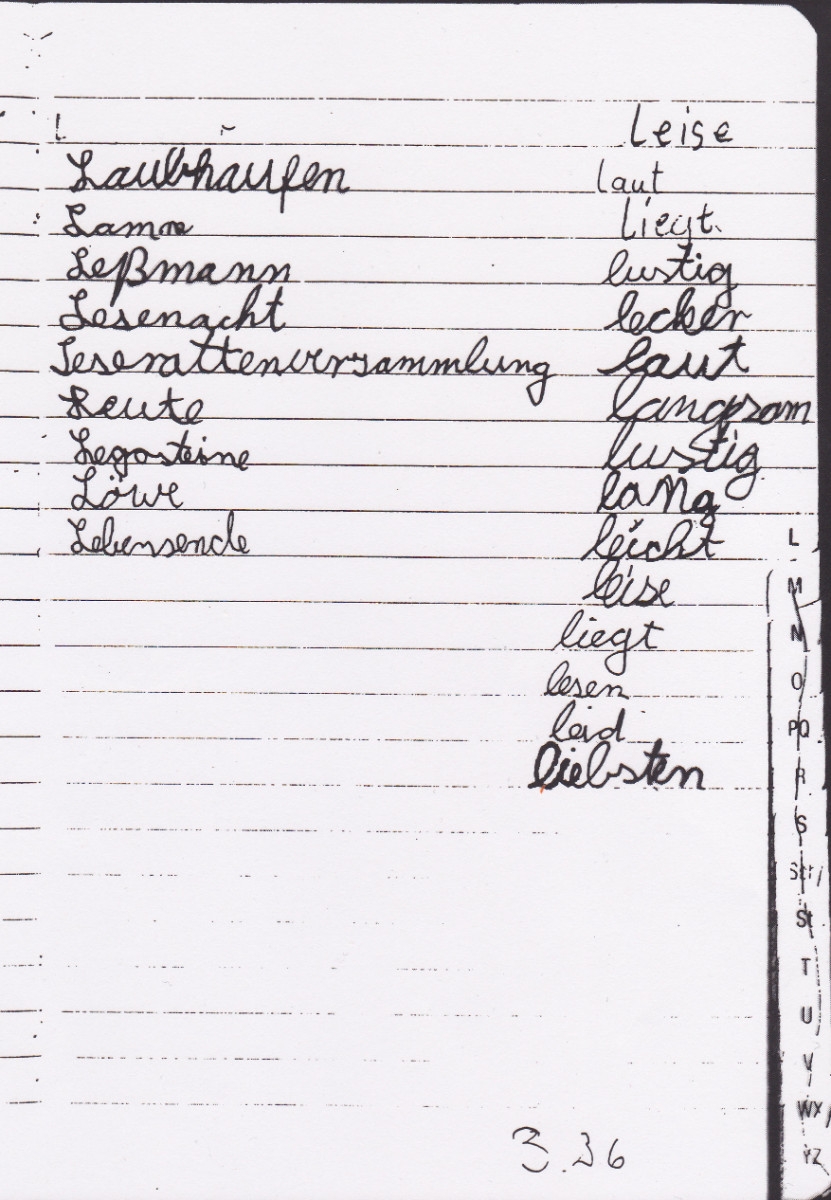 L
Leise
Laubhaufen laut
Lamm Liegt.
Leßmann lustig
Lesenacht lecker
Leserattenversammlung laut
Leute langsam
Legosteine lustig
Löwe lang
Lebensende leicht
leise
liegt
lesen
leid
liebsten
L
M
N
O
PQ
R
S
Sch
St
T
U
V
WX
YZ
3.36